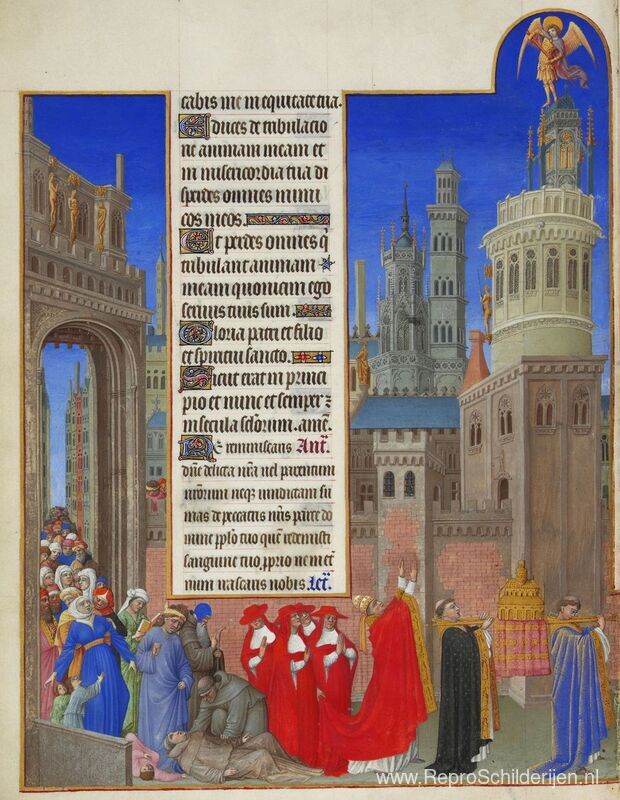 cabis me in equitate tua.
Educes de tribulatio
ne animam meam et
in misericordia tua di
sperdes omnes inimi
cos meos.
Et perdes omnes q̄
tribulant animam
meam quoniam ego
seruus tuus sum.
Gloria patri et filio
et spiritui sancto.
Sicut erat in princi
pio et nunc et semper ⁊
in secula sc̄lorum. amē.
Ne reminiscaris Añ.
dn̄e delicta nr̄a uel parentum
nr̄orum neqꝫ uindictam su
mas de peccatis nr̄is parce do
mine pp̄lo tuo quē redemisti
sanguine tuo, pprio ne in et̄
num irascaris nobis. Lc̄.
www.ReproSchilderijen.nl